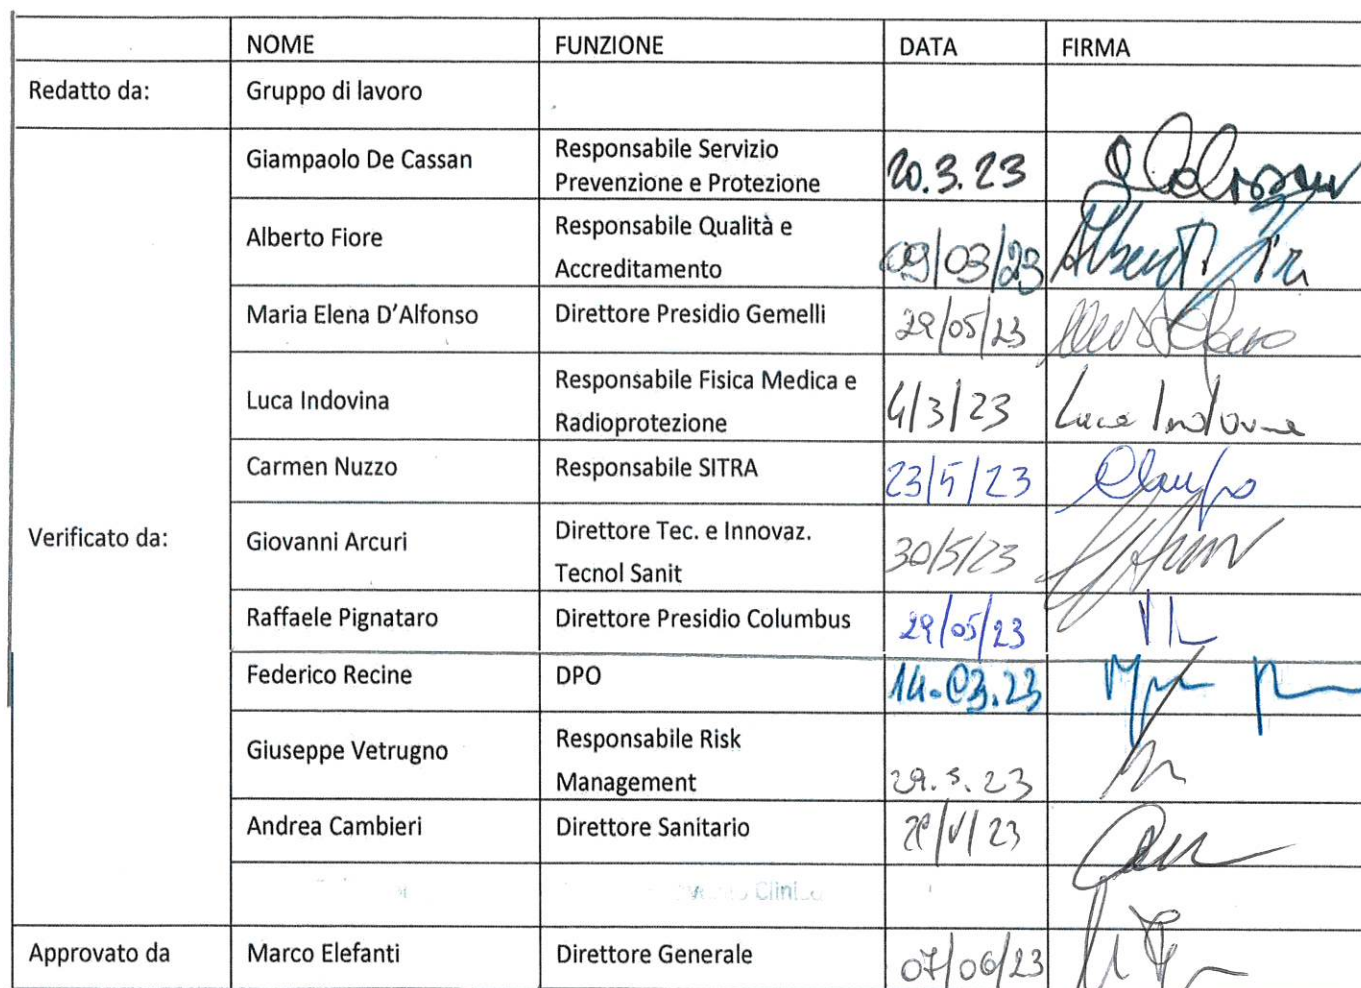 NOME FUNZIONE DATA FIRMA
Redatto da: Gruppo di lavoro
Giampaolo De Cassan Responsabile Servizio
Prevenzione e Protezione 20.3.23
Alberto Fiore Responsabile Qualità e
Accreditamento 09/03/23
Maria Elena D'Alfonso Direttore Presidio Gemelli 29/05/23
Luca Indovina Responsabile Fisica Medica e
Radioprotezione 4/3/23 Luca Indovina
Carmen Nuzzo Responsabile SITRA 23/5/23
Verificato da: Giovanni Arcuri Direttore Tec. e Innovaz.
Tecnol Sanit 30/5/23
Raffaele Pignataro Direttore Presidio Columbus 29/05/23
Federico Recine DPO 14.03.23
Giuseppe Vetrugno Responsabile Risk
Management 29.5.23
Andrea Cambieri Direttore Sanitario
Approvato da Marco Elefanti Direttore Generale 07/06/23